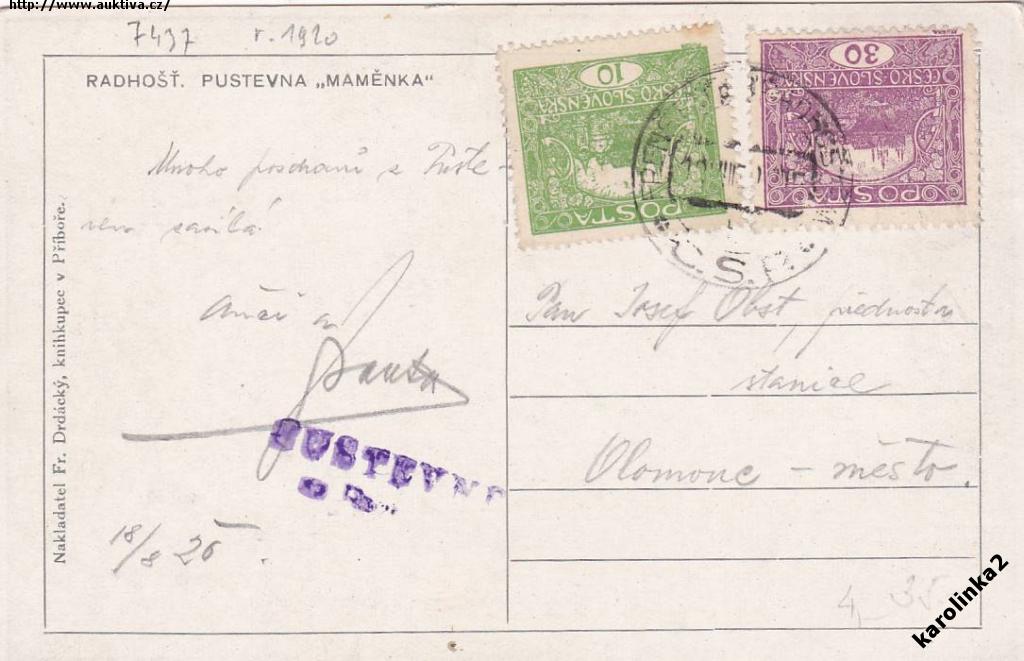 http://www.auktiva.cz/
7437 r. 1920
RADHOŠŤ. PUSTEVNA „MAMĚNKA“
10
ČESKO-SLOVENSKÁ
POŠTA
30
ČESKO-SLOVENSKÁ
POŠTA
Č.S.R.
Mnoho pozdravů z Puste-
ven zasílá
a
Nakladatel Fr. Drdácký, knihkupec v Příboře.
PUSTEVNY
18/8 20
Pan Josef Obst, přednosta
stanice
Olomouc – město.
4,
35
karolinka2